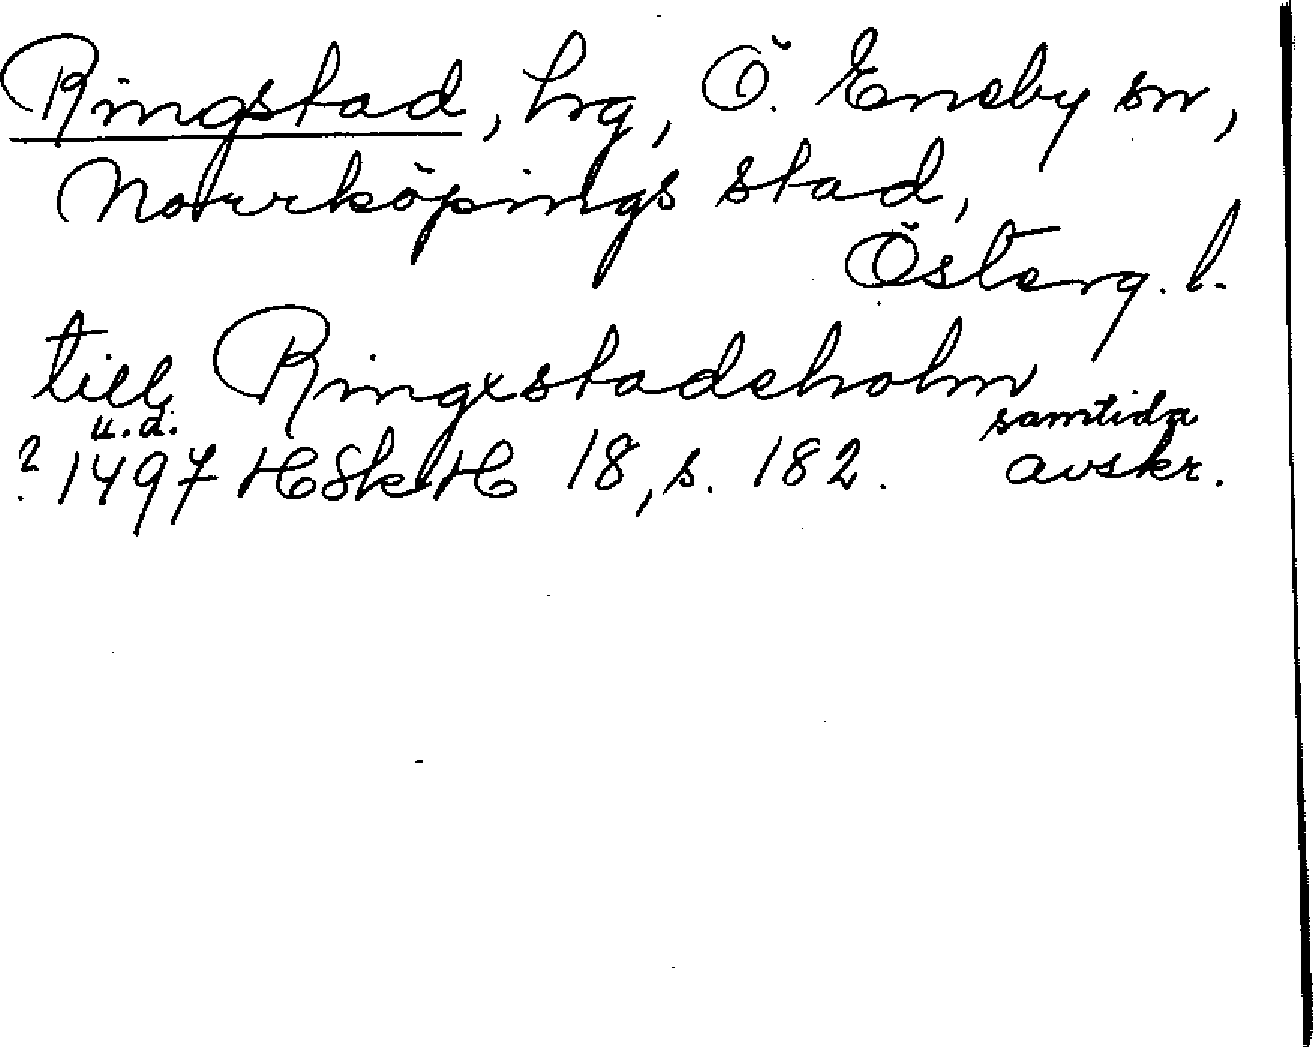 Ringstad, hg, Ö. Eneby sn,
Norrköpings stad,
Österg. l.
till Ringxstadeholm
u.d. samtida
? 1497 HSkH 18, s. 182. avskr.